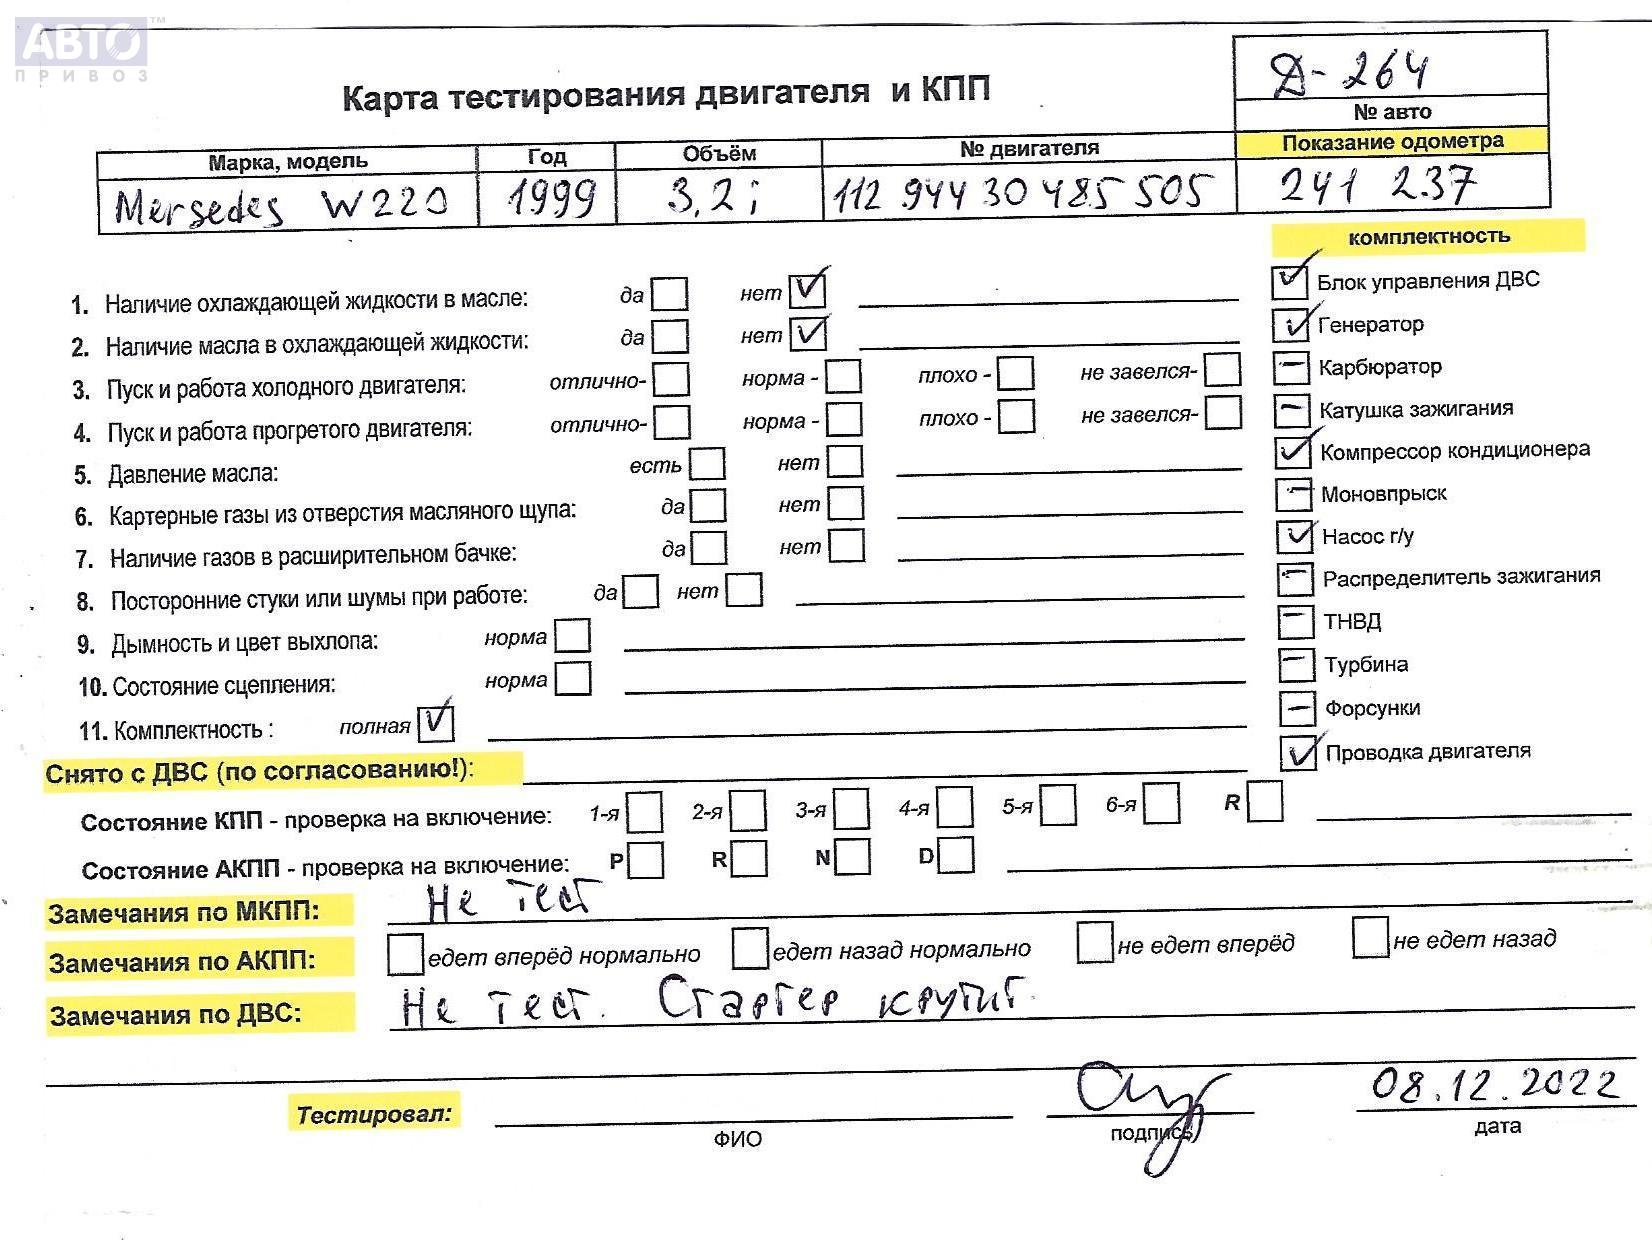 АВТО™
ПРИВОЗ
Карта тестирования двигателя и КПП
Д-264
№ авто
Марка, модель Год Объём № двигателя Показание одометра
Mersedes W220 1999 3,2i 112 944 30 485 505 241 237
комплектность
1. Наличие охлаждающей жидкости в масле: да нет ✓
2. Наличие масла в охлаждающей жидкости: да нет ✓
3. Пуск и работа холодного двигателя: отлично- норма - плохо - не завелся-
4. Пуск и работа прогретого двигателя: отлично- норма - плохо - не завелся-
5. Давление масла: есть нет
6. Картерные газы из отверстия масляного щупа: да нет
7. Наличие газов в расширительном бачке: да нет
8. Посторонние стуки или шумы при работе: да нет
9. Дымность и цвет выхлопа: норма
10. Состояние сцепления: норма
11. Комплектность : полная ✓
✓ Блок управления ДВС
✓ Генератор
– Карбюратор
– Катушка зажигания
✓ Компрессор кондиционера
– Моновпрыск
✓ Насос г/у
– Распределитель зажигания
– ТНВД
– Турбина
– Форсунки
✓ Проводка двигателя
Снято с ДВС (по согласованию!):
Состояние КПП - проверка на включение: 1-я 2-я 3-я 4-я 5-я 6-я R
Состояние АКПП - проверка на включение: P R N D
Замечания по МКПП: Не тест
Замечания по АКПП: едет вперёд нормально едет назад нормально не едет вперёд не едет назад
Замечания по ДВС: Не тест. Стартер крутит.
Тестировал: 08.12.2022
ФИО подпись дата